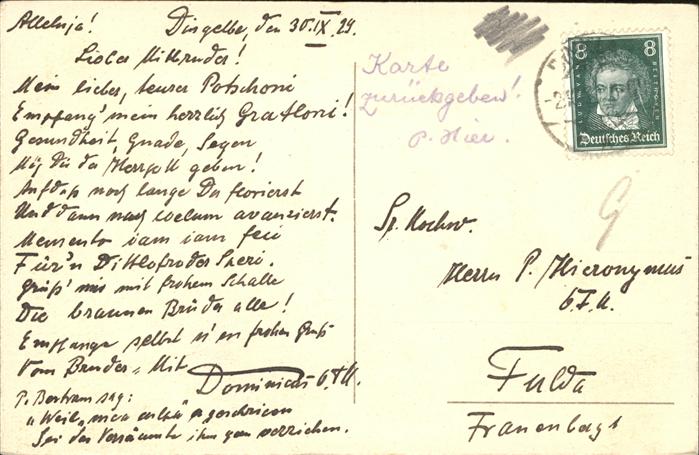 Alleluja! Dingelbe, den 30.IX.29.
Lieber Mitbruder!
Mein lieber, teurer Potschoni
Empfang' mein herzlich Gratloni!
Gesundheit, Gnade, Segen
Mög dir der Herrgott geben!
Auf daß noch lange Du florierst
Und dann nach coelum avanzierst.
Memento iam iam
Für'n
Grüß' mir mit frohem Schalle
Die braunen Brüder alle!
Empfange selbst n'en frohen Gruß
Vom Bruder „Mit
Dominicus O.F.M.
P. Bertram sag:
„Weil" geschrieen
Sei das Versäumte ihm gern verziehen.
Karte
zurückgeben!
P. Hier.
8 8
LUDWIG VAN BEETHOVEN
Deutsches Reich
Sr. Hochw.
Herrn P. Hieronymus
O.F.M.
Fulda
Frauenbg